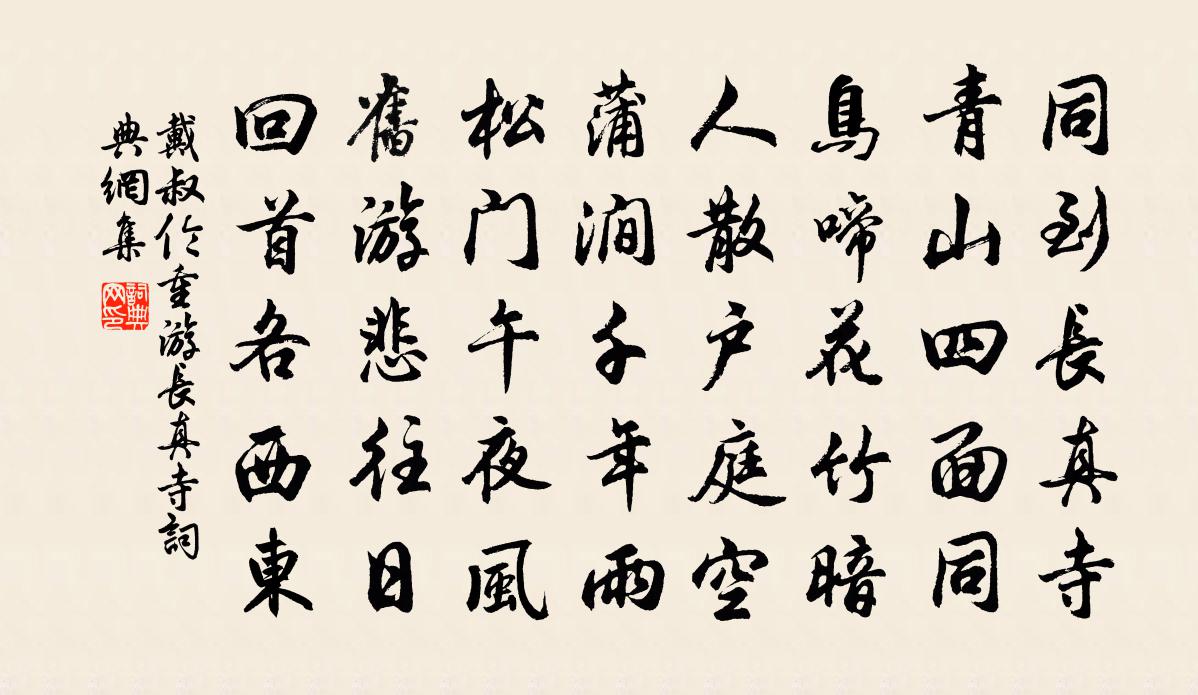 同到長真寺
青山四面同
鳥啼花竹暗
人散户庭空
蒲澗千年雨
松门午夜風
舊游悲往日
回首各西東
戴叔伦重游長真寺詞
典網集
詞典
网印